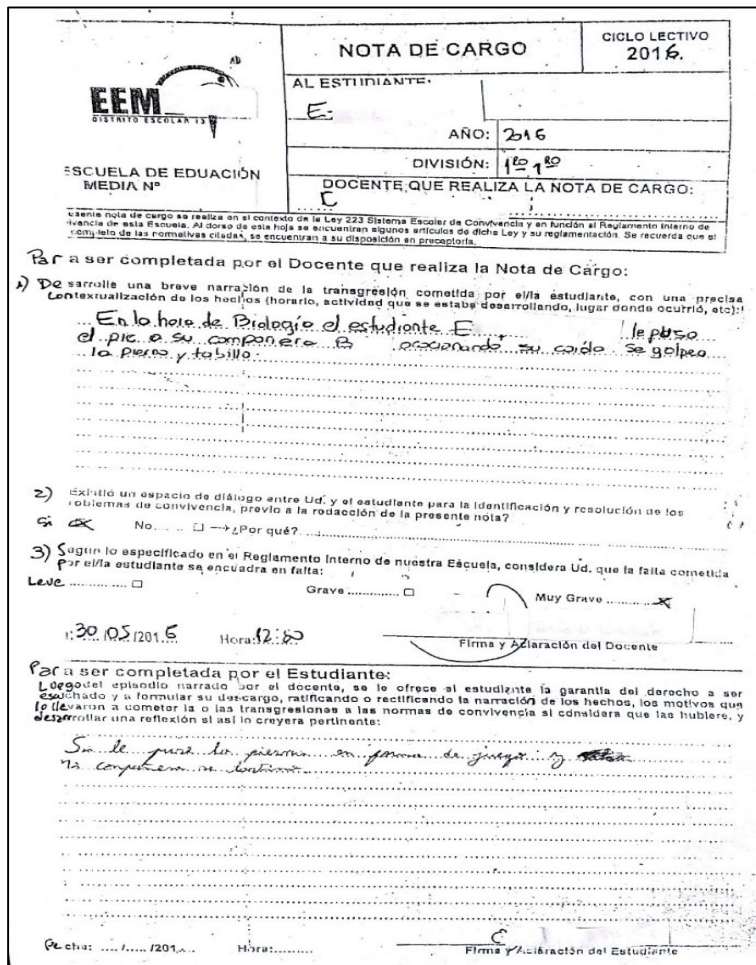 NOTA DE CARGO
CICLO LECTIVO
2016.
EEM
DISTRITO ESCOLAR 13
AL ESTUDIANTE:
E.
AÑO: 2016
DIVISIÓN: 1ro 1ro
ESCUELA DE EDUACIÓN
MEDIA Nº
DOCENTE QUE REALIZA LA NOTA DE CARGO:
C
esente nota de cargo se realiza en el contexto de la Ley 223 Sistema Escolar de Convivencia y en función al Reglamento Interno de
vivencia de esta Escuela. Al dorso de esta hoja se encuentran algunos artículos de dicha Ley y su reglamentación. Se recuerda que el
completo de las normativas citadas, se encuentran a su disposición en preceptoría.
Para ser completada por el Docente que realiza la Nota de Cargo:
1) Desarrolle una breve narración de la transgresión cometida por el/la estudiante, con una precisa
contextualización de los hechos (horario, actividad que se estaba desarrollando, lugar donde ocurrió, etc):
En la hora de Biología el estudiante E le puso
el pie a su compañera B ocacionando su caída se golpeo
la pierna y tobillo.
2) Existió un espacio de diálogo entre Ud. y el estudiante para la identificación y resolución de los
roblemas de convivencia, previo a la redacción de la presente nota?
Si No ..... → ¿Por qué?
3) Segun lo especificado en el Reglamento Interno de nuestra Escuela, considera Ud. que la falta cometida
por el/la estudiante se encuadra en falta:
Leve ............. Grave ............. Muy Grave ..........
30/05/2016 Hora: 12:
Firma y Aclaración del Docente
Para ser completada por el Estudiante:
Luego del episodio narrado por el docente, se le ofrece al estudiante la garantía del derecho a ser
escuchado y a formular su descargo, ratificando o rectificando la narración de los hechos, los motivos que
lo llevaron a cometer la o las transgresiones a las normas de convivencia si considera que las hubiere, y
desarrollar una reflexión si así lo creyera pertinente:
le puse las piernas en forma de juego y
mi compañera se lastimo
Fecha: ..../...../201.... Hora:.........
C
Firma y Aclaración del Estudiante